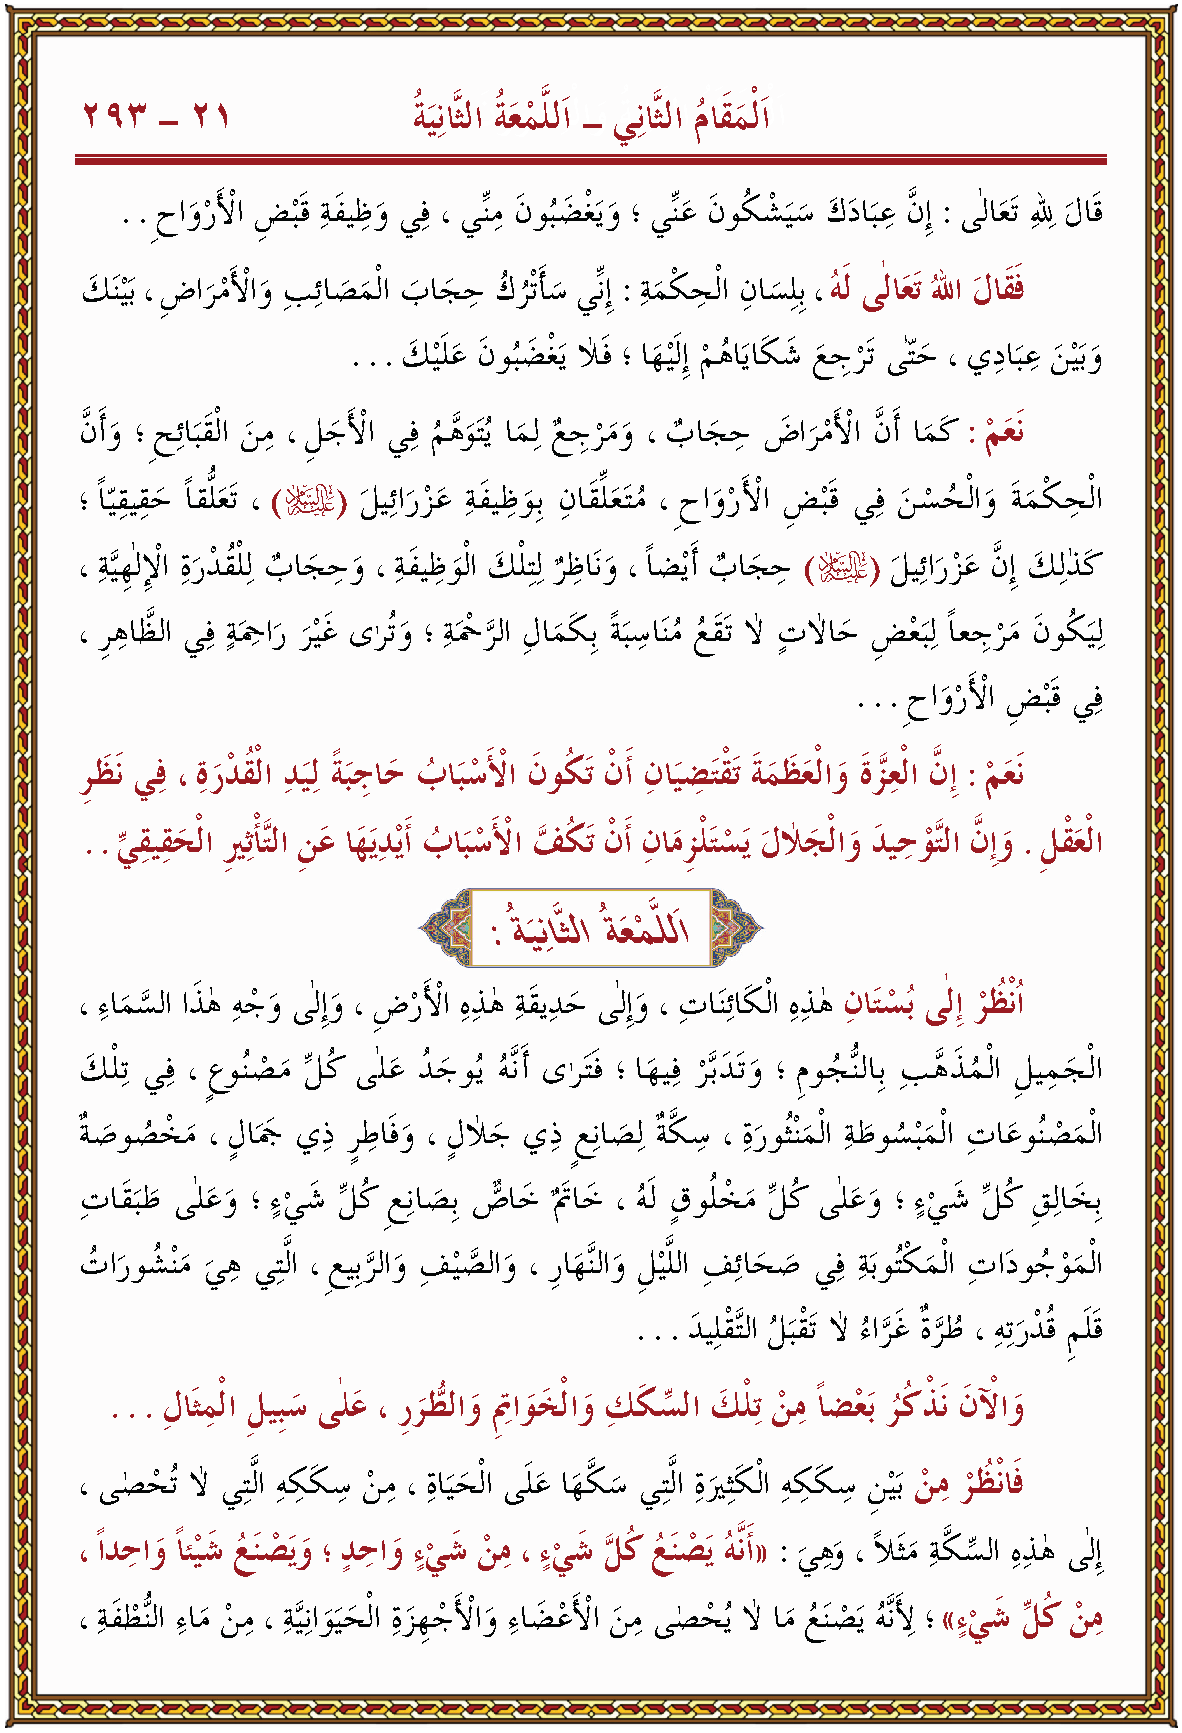 اَلْمَقَامُ الثَّانِي – اَللَّمْعَةُ الثَّانِيَةُ ٢١ – ٢٩٣
قَالَ لِلّٰهِ تَعَالٰى : إِنَّ عِبَادَكَ سَيَشْكُونَ عَنِّي ؛ وَيَغْضَبُونَ مِنِّي ، فِي وَظِيفَةِ قَبْضِ الْأَرْوَاحِ . .
فَقَالَ اللّٰهُ تَعَالٰى لَهُ ، بِلِسَانِ الْحِكْمَةِ : إِنِّي سَأَتْرُكُ حِجَابَ الْمَصَائِبِ وَالْأَمْرَاضِ ، بَيْنَكَ
وَبَيْنَ عِبَادِي ، حَتّٰى تَرْجِعَ شَكَايَاهُمْ إِلَيْهَا ؛ فَلَا يَغْضَبُونَ عَلَيْكَ . . .
نَعَمْ : كَمَا أَنَّ الْأَمْرَاضَ حِجَابٌ ، وَمَرْجِعٌ لِمَا يُتَوَهَّمُ فِي الْأَجَلِ ، مِنَ الْقَبَائِحِ ؛ وَأَنَّ
الْحِكْمَةَ وَالْحُسْنَ فِي قَبْضِ الْأَرْوَاحِ ، مُتَعَلِّقَانِ بِوَظِيفَةِ عَزْرَائِيلَ (عَلَيْهِ السَّلَامُ) ، تَعَلُّقاً حَقِيقِيّاً ؛
كَذٰلِكَ إِنَّ عَزْرَائِيلَ (عَلَيْهِ السَّلَامُ) حِجَابٌ أَيْضاً ، وَنَاظِرٌ لِتِلْكَ الْوَظِيفَةِ ، وَحِجَابٌ لِلْقُدْرَةِ الْإِلٰهِيَّةِ ،
لِيَكُونَ مَرْجِعاً لِبَعْضِ حَالَاتٍ لَا تَقَعُ مُنَاسِبَةً بِكَمَالِ الرَّحْمَةِ ؛ وَتُرٰى غَيْرَ رَاحِمَةٍ فِي الظَّاهِرِ ،
فِي قَبْضِ الْأَرْوَاحِ . . .
نَعَمْ : إِنَّ الْعِزَّةَ وَالْعَظَمَةَ تَقْتَضِيَانِ أَنْ تَكُونَ الْأَسْبَابُ حَاجِبَةً لِيَدِ الْقُدْرَةِ ، فِي نَظَرِ
الْعَقْلِ . وَإِنَّ التَّوْحِيدَ وَالْجَلَالَ يَسْتَلْزِمَانِ أَنْ تَكُفَّ الْأَسْبَابُ أَيْدِيَهَا عَنِ التَّأْثِيرِ الْحَقِيقِيِّ . .
اَللَّمْعَةُ الثَّانِيَةُ :
اُنْظُرْ إِلٰى بُسْتَانِ هٰذِهِ الْكَائِنَاتِ ، وَإِلٰى حَدِيقَةِ هٰذِهِ الْأَرْضِ ، وَإِلٰى وَجْهِ هٰذَا السَّمَاءِ ،
الْجَمِيلِ الْمُذَهَّبِ بِالنُّجُومِ ؛ وَتَدَبَّرْ فِيهَا ؛ فَتَرٰى أَنَّهُ يُوجَدُ عَلٰى كُلِّ مَصْنُوعٍ ، فِي تِلْكَ
الْمَصْنُوعَاتِ الْمَبْسُوطَةِ الْمَنْثُورَةِ ، سِكَّةٌ لِصَانِعٍ ذِي جَلَالٍ ، وَفَاطِرٍ ذِي جَمَالٍ ، مَخْصُوصَةٌ
بِخَالِقِ كُلِّ شَيْءٍ ؛ وَعَلٰى كُلِّ مَخْلُوقٍ لَهُ ، خَاتَمٌ خَاصٌّ بِصَانِعِ كُلِّ شَيْءٍ ؛ وَعَلٰى طَبَقَاتِ
الْمَوْجُودَاتِ الْمَكْتُوبَةِ فِي صَحَائِفِ اللَّيْلِ وَالنَّهَارِ ، وَالصَّيْفِ وَالرَّبِيعِ ، الَّتِي هِيَ مَنْشُورَاتُ
قَلَمِ قُدْرَتِهِ ، طُرَّةٌ غَرَّاءُ لَا تَقْبَلُ التَّقْلِيدَ . . .
وَالْآنَ نَذْكُرُ بَعْضاً مِنْ تِلْكَ السِّكَكِ وَالْخَوَاتِمِ وَالطُّرَرِ ، عَلٰى سَبِيلِ الْمِثَالِ . . .
فَانْظُرْ مِنْ بَيْنِ سِكَكِهِ الْكَثِيرَةِ الَّتِي سَكَّهَا عَلَى الْحَيَاةِ ، مِنْ سِكَكِهِ الَّتِي لَا تُحْصٰى ،
إِلٰى هٰذِهِ السِّكَّةِ مَثَلاً ، وَهِيَ : «أَنَّهُ يَصْنَعُ كُلَّ شَيْءٍ ، مِنْ شَيْءٍ وَاحِدٍ ؛ وَيَصْنَعُ شَيْئاً وَاحِداً ،
مِنْ كُلِّ شَيْءٍ» ؛ لِأَنَّهُ يَصْنَعُ مَا لَا يُحْصٰى مِنَ الْأَعْضَاءِ وَالْأَجْهِزَةِ الْحَيَوَانِيَّةِ ، مِنْ مَاءِ النُّطْفَةِ ،